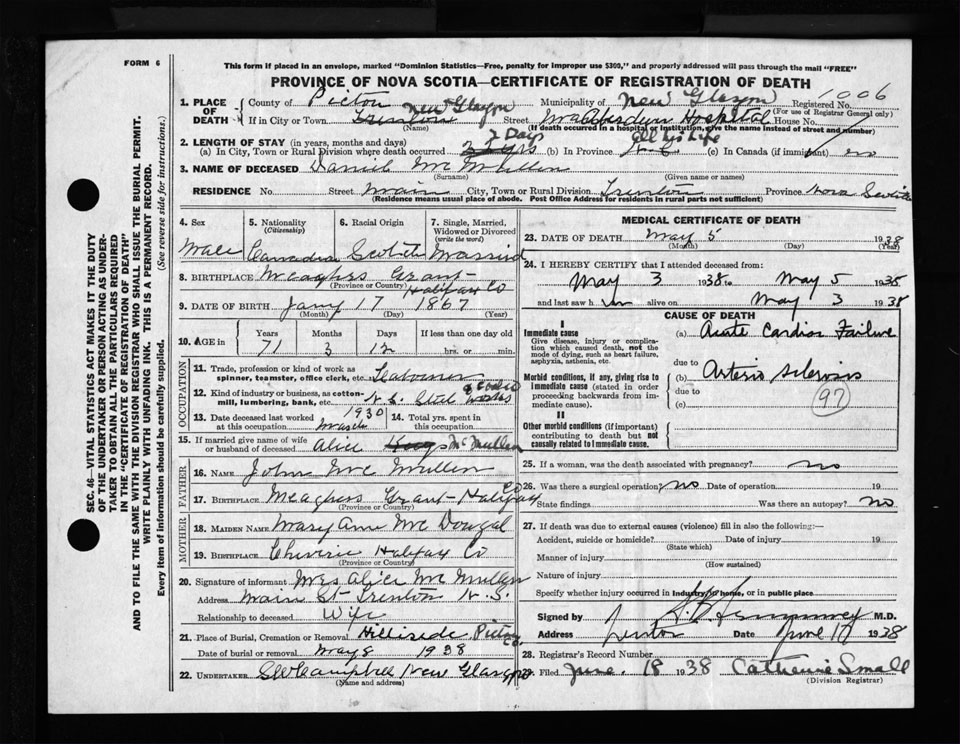 FORM 6
This form if placed in an envelope, marked "Dominion Statistics—Free, penalty for improper use $300," and properly addressed will pass through the mail "FREE"
PROVINCE OF NOVA SCOTIA—CERTIFICATE OF REGISTRATION OF DEATH
1. PLACE OF DEATH County of Pictou Municipality of New Glasgow Registered No. 1006
(For use of Registrar General only)
If in City or Town New Glasgow Trenton Street Aberdeen Hospital House No.
(Name) (If death occurred in a hospital or institution, give the name instead of street and number)
2. LENGTH OF STAY (in years, months and days) 2 Days All his life
(a) In City, Town or Rural Division where death occurred (b) In Province (c) In Canada (if immigrant) no
3. NAME OF DECEASED Daniel McMullen
(Surname) (Given name or names)
RESIDENCE No. Street Main City, Town or Rural Division Trenton Province Nova Scotia
(Residence means usual place of abode. Post Office Address for residents in rural parts not sufficient)
4. Sex
Male
5. Nationality
(Citizenship)
Canadian
6. Racial Origin
Scotch
7. Single, Married, Widowed or Divorced
(write the word)
Married
8. BIRTHPLACE Meaghers Grant Halifax Co
(Province or Country)
9. DATE OF BIRTH Jany 17 1867
(Month) (Day) (Year)
10. AGE in Years Months Days If less than one day old
71 3 12 hrs. or min.
OCCUPATION
11. Trade, profession or kind of work as spinner, teamster, office clerk, etc.
12. Kind of industry or business, as cotton-mill, lumbering, bank, etc. N.S. Steel
13. Date deceased last worked at this occupation March 1930
14. Total yrs. spent in this occupation
15. If married give name of wife or husband of deceased Alice McMullen
FATHER
16. NAME John McMullen
17. BIRTHPLACE Meaghers Grant Halifax Co
(Province or Country)
MOTHER
18. MAIDEN NAME Mary Ann McDougal
19. BIRTHPLACE Halifax Co
(Province or Country)
20. Signature of informant Mrs Alice McMullen
Address Main St Trenton N.S.
Relationship to deceased Wife
21. Place of Burial, Cremation or Removal Hillside Pictou Co.
Date of burial or removal May 8 1938
22. UNDERTAKER Campbell New Glasgow
(Name and address)
MEDICAL CERTIFICATE OF DEATH
23. DATE OF DEATH May 5 1938
(Month) (Day) (Year)
24. I HEREBY CERTIFY that I attended deceased from:
May 3 1938 to May 5 1938
and last saw him alive on May 3 1938
CAUSE OF DEATH
I
Immediate cause
Give disease, injury or complication which caused death, not the mode of dying, such as heart failure, asphyxia, asthenia, etc.
(a) Acute Cardiac Failure
due to
Morbid conditions, if any, giving rise to immediate cause (stated in order proceeding backwards from immediate cause).
(b) Arterio sclerosis
due to
(c)
97
II
Other morbid conditions (if important) contributing to death but not causally related to immediate cause.
25. If a woman, was the death associated with pregnancy? no
26. Was there a surgical operation? no Date of operation 19
State findings Was there an autopsy? no
27. If death was due to external causes (violence) fill in also the following:—
Accident, suicide or homicide? Date of injury 19
(State which)
Manner of injury
(How sustained)
Nature of injury
Specify whether injury occurred in industry, in home, or in public place
Signed by M.D.
Address Trenton Date June 1938
28. Registrar's Record Number
29. Filed June 18 1938 Catherine Small
(Division Registrar)
SEC. 46—VITAL STATISTICS ACT MAKES IT THE DUTY
OF THE UNDERTAKER OR PERSON ACTING AS UNDER-
TAKER TO OBTAIN ALL THE PARTICULARS REQUIRED
IN THE "CERTIFICATE OF REGISTRATION OF DEATH"
AND TO FILE THE SAME WITH THE DIVISION REGISTRAR WHO SHALL ISSUE THE BURIAL PERMIT.
WRITE PLAINLY WITH UNFADING INK. THIS IS A PERMANENT RECORD.
Every item of information should be carefully supplied. (See reverse side for instructions.)